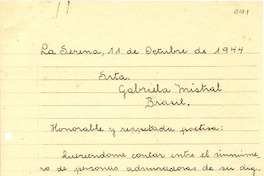 La Serena, 11 de Octubre de 1944
Srta.
Gabriela Mistral
Brasil.
Honorable y respetada poetisa:
Queriendome contar entre el sinnúme
ro de personas admiradoras de su dig